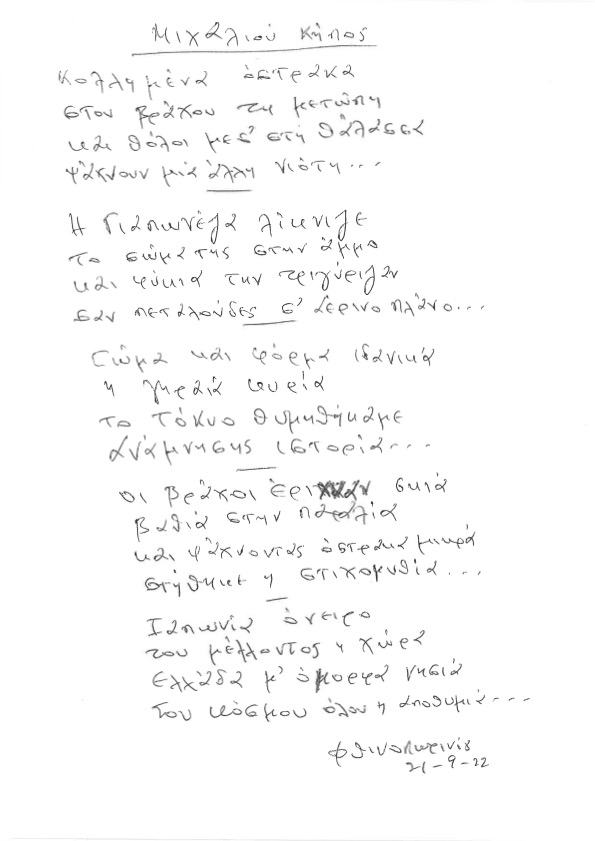 Μιχαλιού Κήπος
Κολλημένα όστρακα
στον βράχου τη μετώπη
και θόλοι μεσ' στη θάλασσα
ψάχνουν μια άλλη νιότη...
Η Γιαπωνέζα λίκνιζε
το σώμα της στην άμμο
και φύκια την τριγύριζαν
σαν πεταλούδες σ' αέρινο πλάνο...
Σώμα και φόρμα ιδανικά
η γηραιά κυρία
το Τόκυο θυμηθήκαμε
ανάμνησης ιστορία...
οι βράχοι έριχναν σκιά
βαθιά στην παραλία
και ψάχνοντας όστρακα μικρά
στήθηκε η στιχομυθία...
Ιαπωνία όνειρο
του μέλλοντος η χώρα
Ελλάδα μ' όμορφα νησιά
του κόσμου όλου η αποθυμιά...
φθινοπωρινό
21-9-22